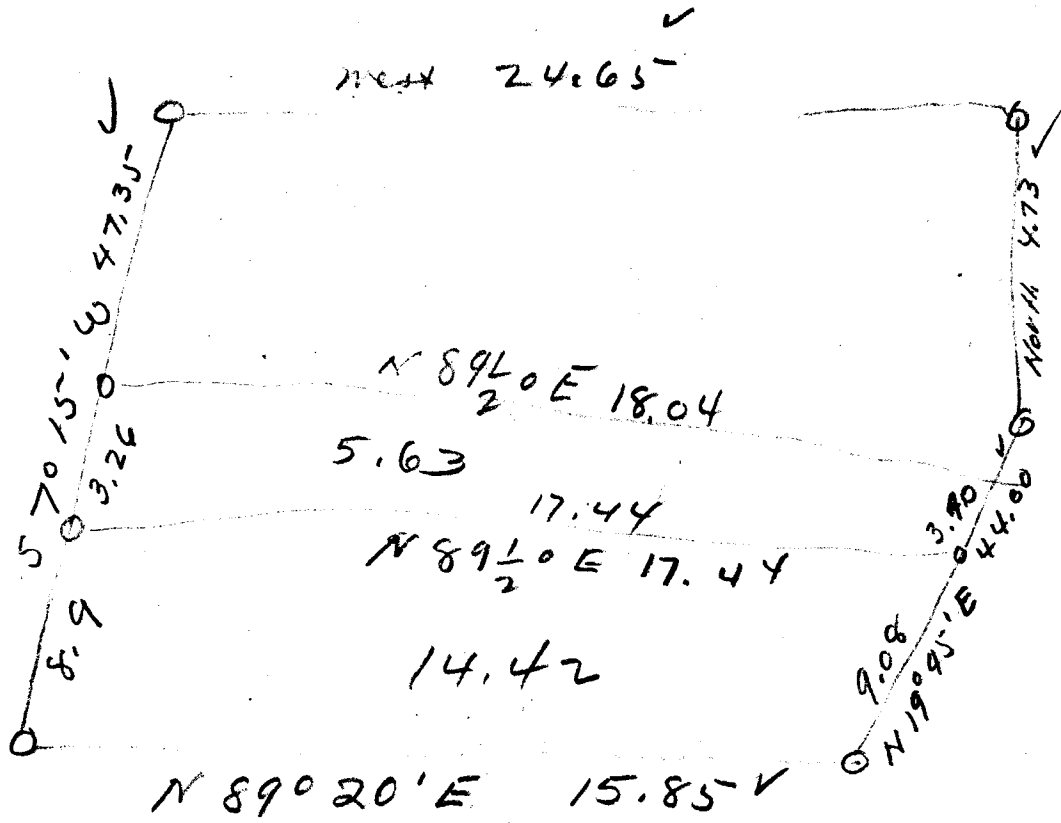 West 24.65
S 7° 15' W 47.35
North 4.73
N 89 1/2° E 18.04
3.26
5.63
17.44
N 89 1/2° E 17.44
3.40
44.00
8.9
14.42
9.08
N 19° 45' E
N 89° 20' E 15.85